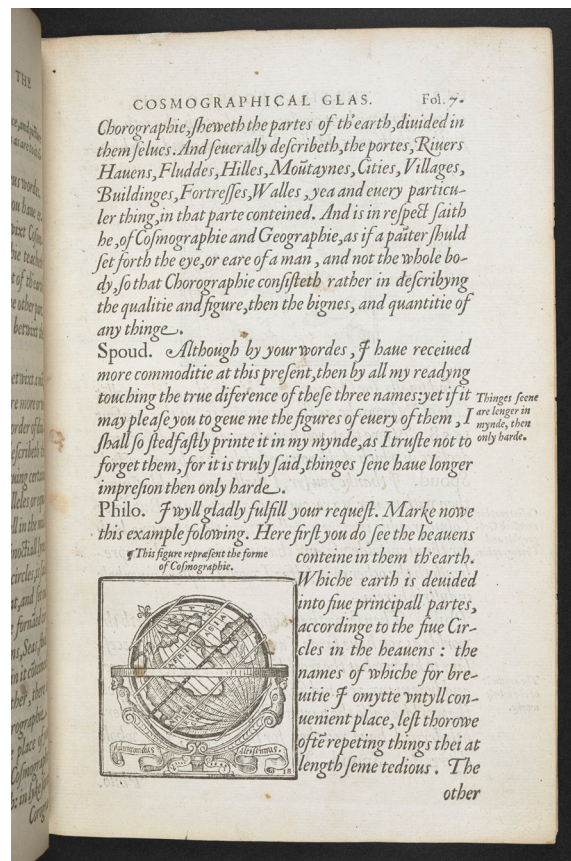 COSMOGRAPHICAL GLAS. Fol. 7.
Chorographie, ſheweth the partes of th'earth, diuided in
them ſelues. And ſeuerally deſcribeth, the portes, Riuers
Hauens, Fluddes, Hilles, Moũtaynes, Cities, Villages,
Buildinges, Fortreſſes, Walles, yea and euery particu-
ler thing, in that parte conteined. And is in reſpect ſaith
he, of Coſmographie and Geographie, as if a paĩter ſhuld
ſet forth the eye, or eare of a man, and not the whole bo-
dy, ſo that Chorographie conſiſteth rather in deſcribyng
the qualitie and figure, then the bignes, and quantitie of
any thinge.
Spoud. Although by your wordes, I haue receiued
more commoditie at this preſent, then by all my readyng
touching the true diference of theſe three names: yet if it
may pleaſe you to geue me the figures of euery of them, I
ſhall ſo ſtedfaſtly printe it in my mynde, as I truſte not to
forget them, for it is truly ſaid, thinges ſene haue longer
impreſion then only harde.
Thinges ſeene
are lenger in
mynde, then
only harde.
Philo. I wyll gladly fulfill your requeſt. Marke nowe
this example folowing. Here firſt you do ſee the heauens
¶ This figure repræſent the forme
of Coſmographie.
conteine in them th'earth.
Whiche earth is deuided
into fiue principall partes,
accordinge to the fiue Cir-
cles in the heauens : the
names of whiche for bre-
uitie I omytte vntyll con-
uenient place, leſt thorowe
oftẽ repeting things thei at
length ſeme tedious. The
other